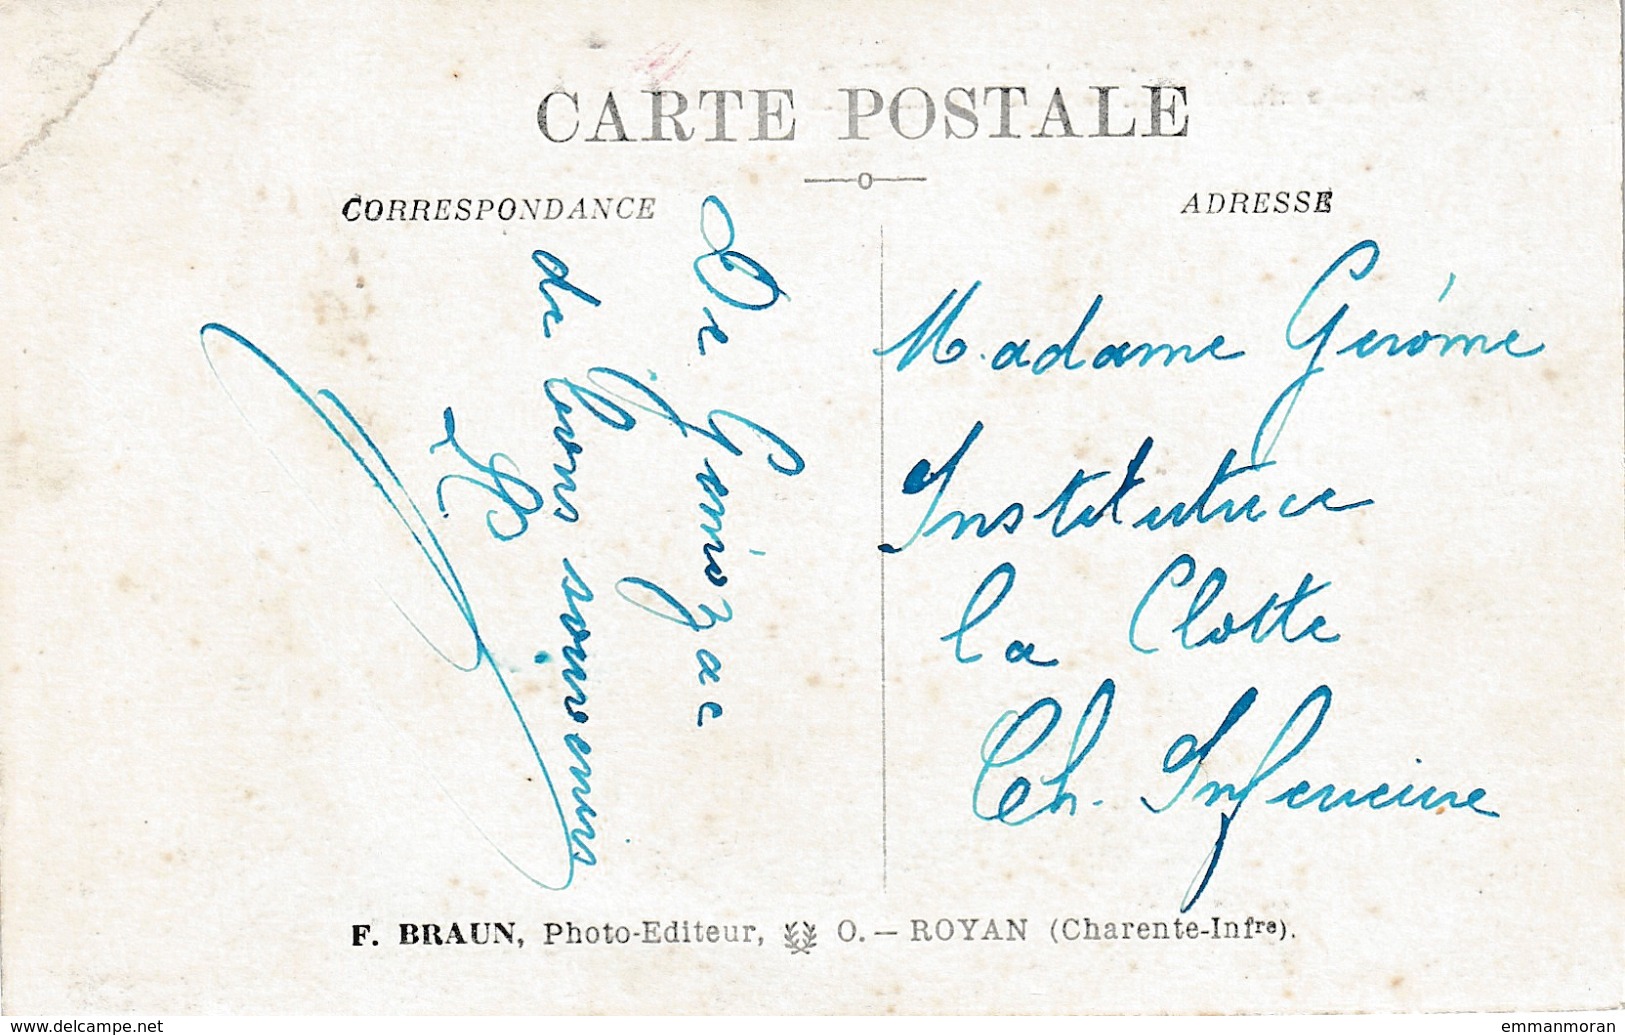 CARTE POSTALE
CORRESPONDANCE
ADRESSE
De Gémozac
de bons souvenirs
Madame Gérôme
Institutrice
la Clotte
Ch. Inferieure
F. BRAUN, Photo-Editeur, O. — ROYAN (Charente-Infre).
https://www.delcampe.net
emmanmoran